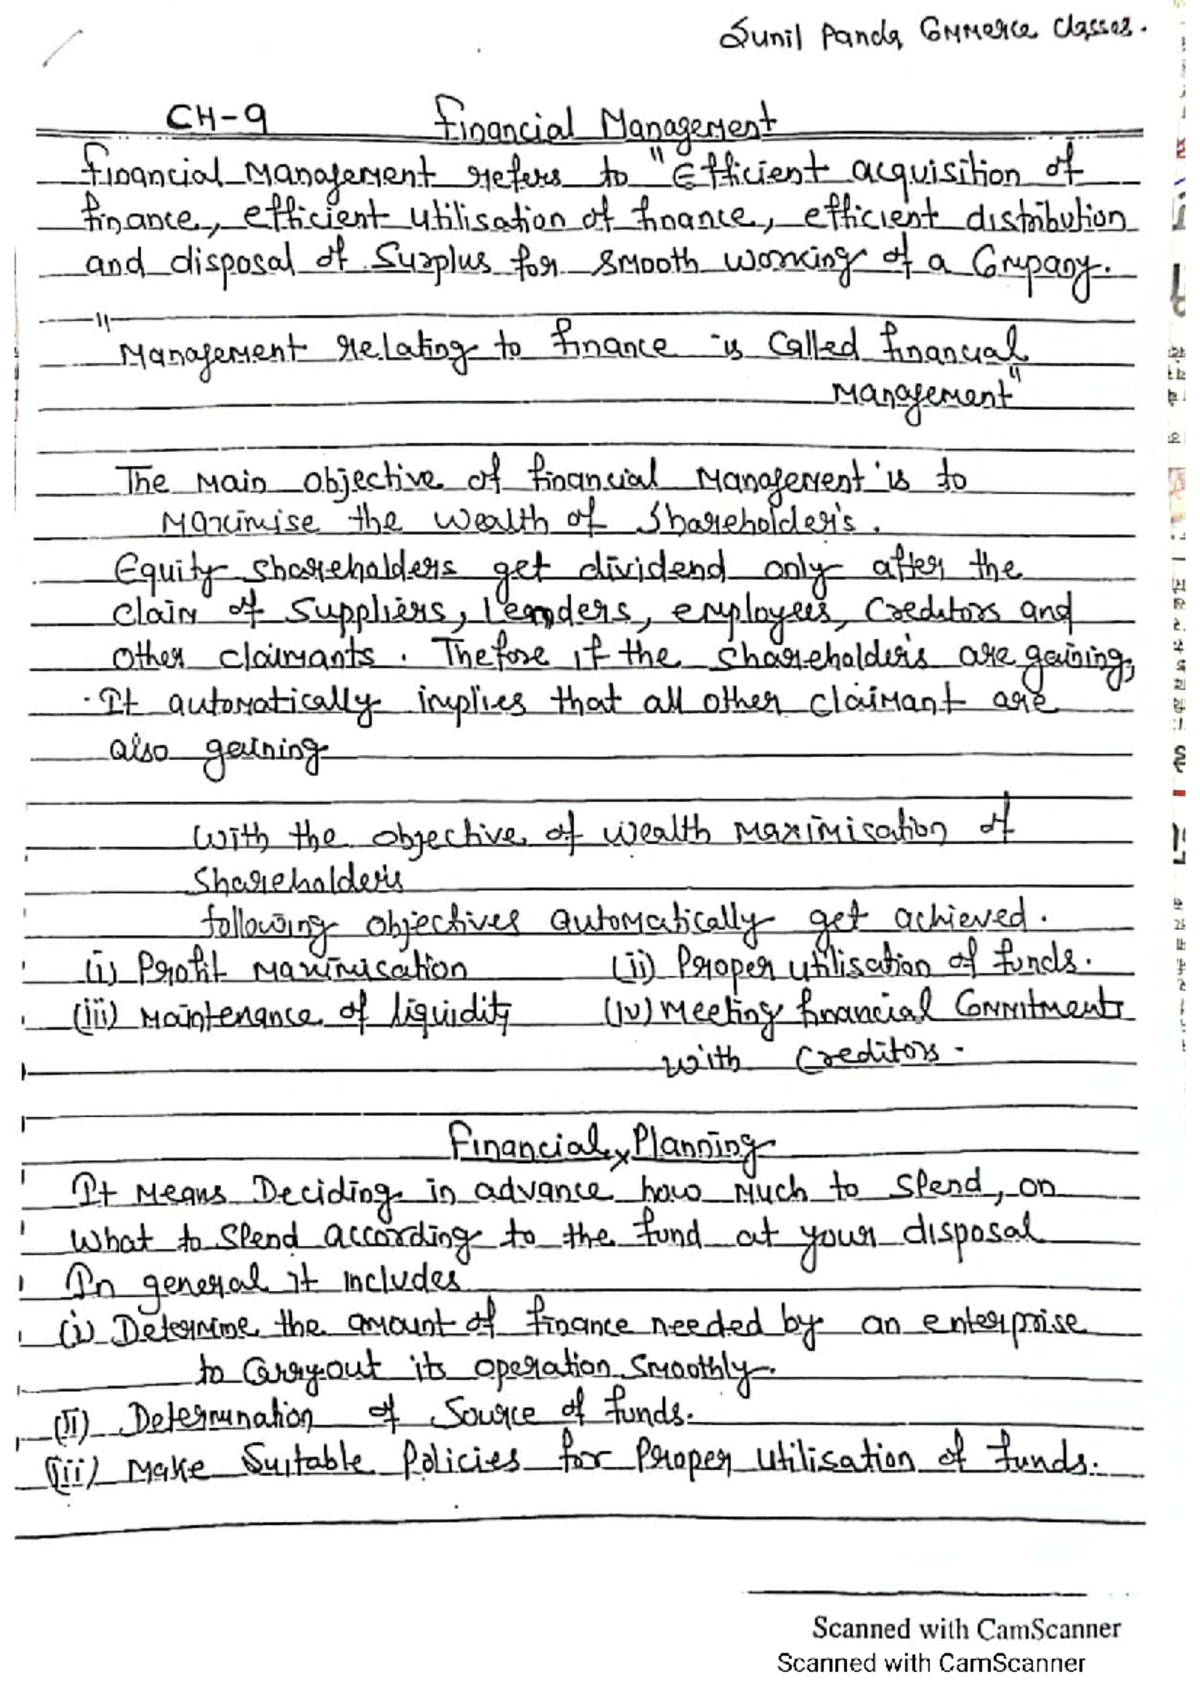 Sunil Panda Commerce Classes.
CH-9 Financial Management
Financial Management refers to "Efficient acquisition of
finance, efficient utilisation of finance, efficient distribution
and disposal of Surplus for smooth working of a Company.
"Management relating to finance is Called financial
Management"
The main objective of financial Management is to
Maximise the wealth of Shareholder's.
Equity shareholders get dividend only after the
claim of Suppliers, Lenders, employees, Creditors and
other claimants. Thefore if the shareholder's are gaining,
It automatically implies that all other claimant are
also gaining
with the objective of wealth maximisation of
Shareholder's
following objectives automatically get achieved.
(i) Profit Maximisation (ii) Proper utilisation of funds.
(iii) Maintenance of liquidity (iv) Meeting financial Commitments
with Creditors.
Financial Planning
It means Deciding in advance how much to spend, on
what to spend according to the fund at your disposal
In general it includes
(i) Determine the amount of finance needed by an enterprise
to Carryout its operation smoothly.
(ii) Determination of Source of funds.
(iii) Make Suitable Policies for Proper utilisation of funds.
Scanned with CamScanner
Scanned with CamScanner